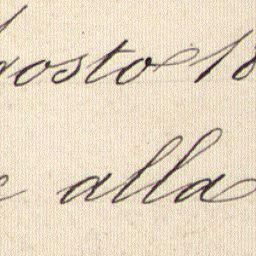 gosto 18
e alla